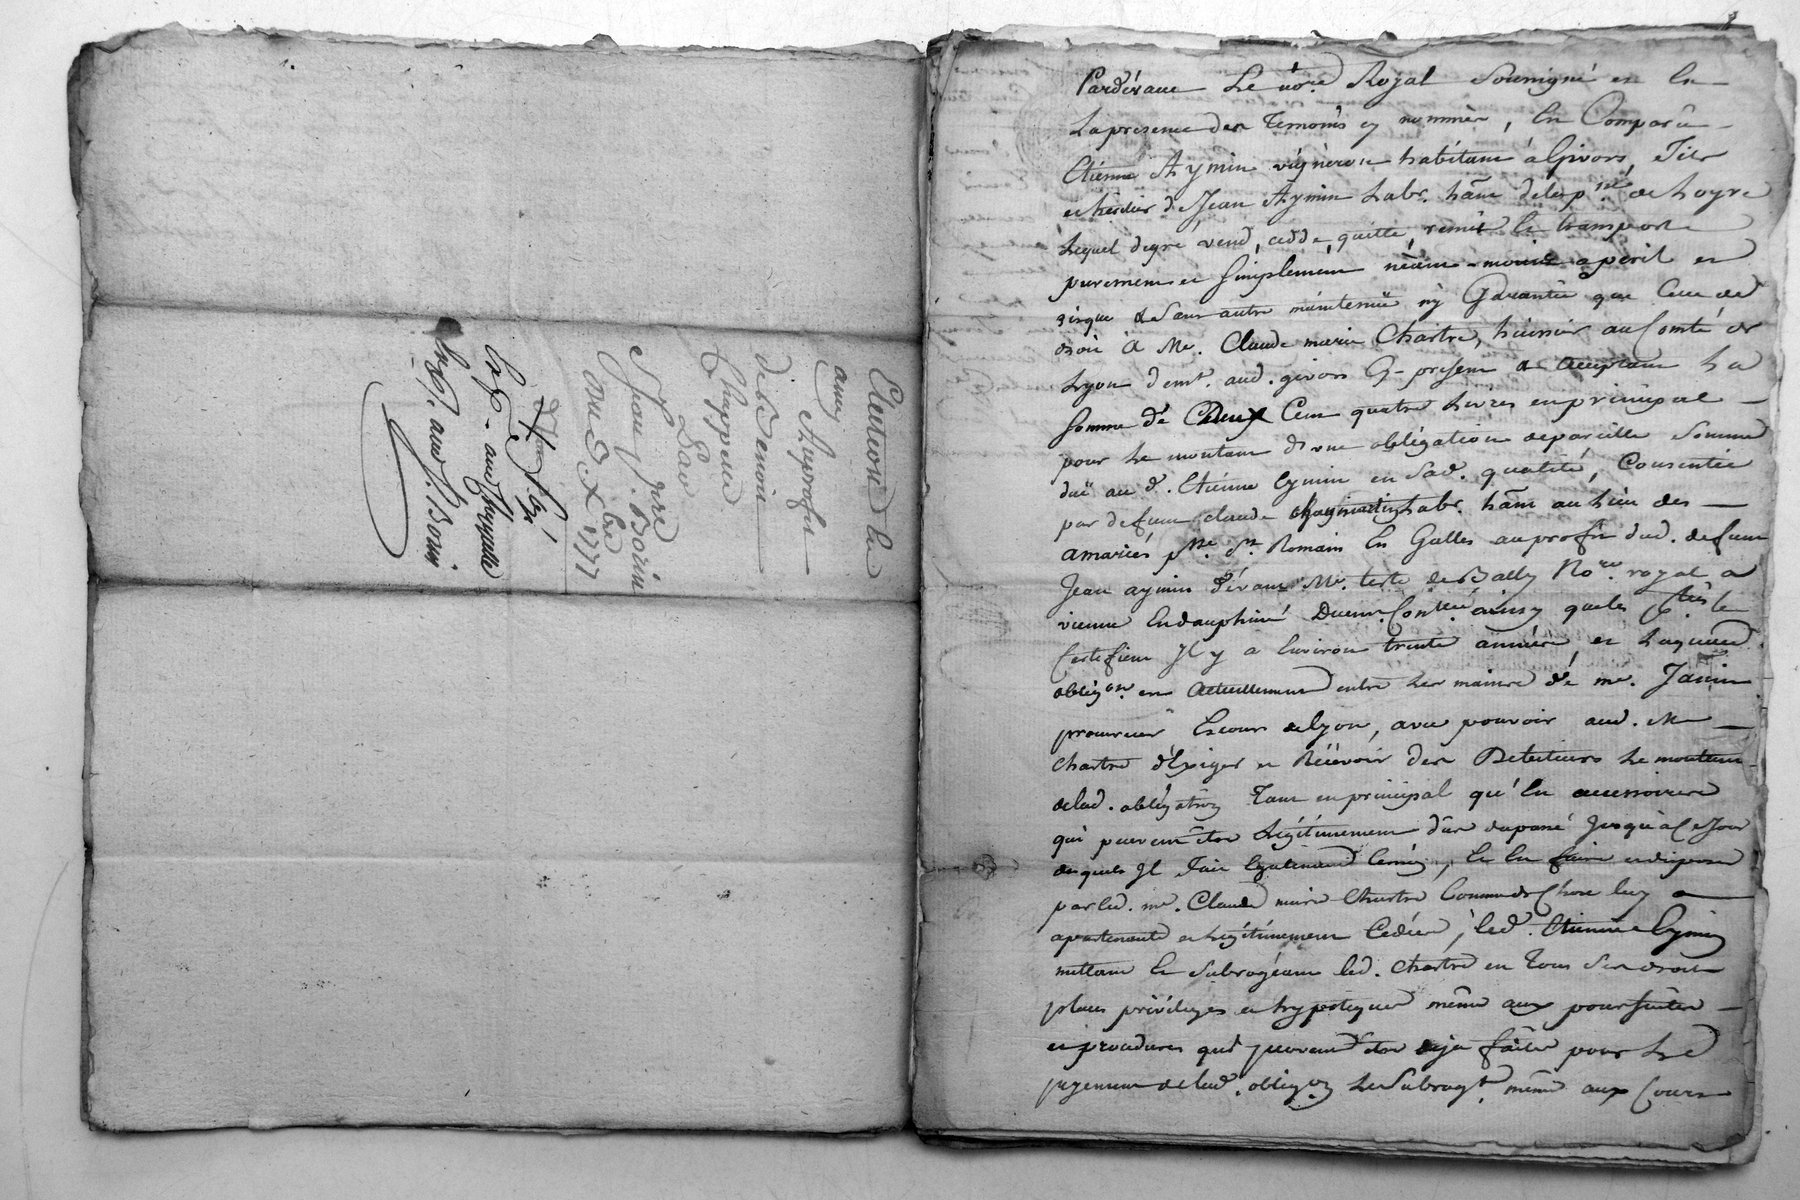 Election en
amy Auprofit
de Benoit
Chappeau
Par
Jean pre. Borin
Du 8 Xbre 1777
Exp. aud. Chappeau
Exp. aud. Borin
Pardevant Le nore. Royal Soussigné et en
La presence des Temoins cy nommés, En Comparu
Etienne Aymin vigneron habitant à Givors, Fils
et heritier de Jean Aymin Labr. hãnt delap.sse de Loyre
Lequel degré vend, cedde, quitte, remet et transporte
purement et simplement néant-moins aperil et
risque et Sans autre maintenüe ny Garantie que Celle de
droit à Me. Claude marie Chartre, huissier au Comté de
Lyon demt. aud. givors Cy-présent et acceptant La
Somme de Deux Cent quatre Livres en principal
pour Le montant d'une obligation depareille Somme
düe au d. Etienne Eymin en Sad. qualité, Consentie
par defunt claude Labr. hãnt au Lieu des
amariés psse. St. Romain En Galles auprofit dud. defunt
Jean aymin dévant Me. teste de Bally Nore. royal a
vienne En dauphiné Duemt. Contrée ainsy que les pties le
Certifient Il y a Environ trente années, et Laquelle
obligon. est actuellement entre Les mains de me. Janin
procureur Es cours de Lyon, avec pouvoir aud. Me
Chartre d'Exiger et Recevoir des Debiteurs Le montant
delad. obligation Tant en principal qu'En accessoires
qui peuvent être Légitimement dûs dupassé Jusqu'à Ce Jour
desquels Il Fait Egalement Cession, Et En faire et disposer
par led. me. Claude marie Chartre Comme de Chose luy
apartenante et Legitimement Cedée, led. Etienne Eymin
mettant Et Subrogeant led. Chartre en Tous Ses droits
places priviléges et hypoteques même aux poursuites
et procedures qui peuvent être deja faites pour Le
payement delad. obligon. Le Subrogt. même aux Cours